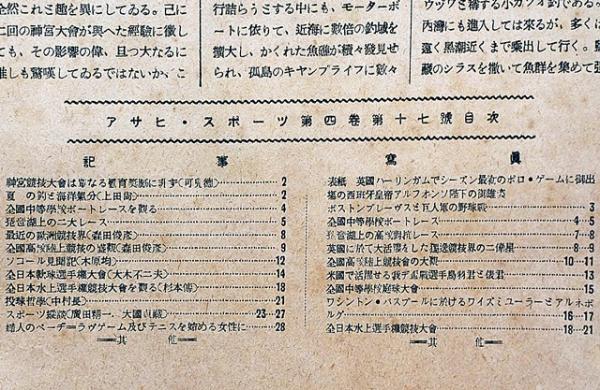 全然これと趣を異にしてゐる。己に
二回の神宮大會が與へた經驗に徴し
ても、その影響の偉、且つ大なるに
誰しも驚嘆してゐるではないか、こ
行詰らうとする中にも、モーターボ
ートに依りて、近海に數倍の釣域を
擴大し、かくれた魚礁が續々發見せ
られ、孤島のキヤンプライフに數々
ウッワと稱する小カツオ釣である。
西灣にも進入しては來るが、多くは
遠く黒潮近くまで乘出して行く。
藏のシラスを撒いて魚群を集めて
アサヒ・スポーツ第四卷第十七號目次
記事
神宮競技大會は單なる體育奬勵に非ず(可兒德) 2
夏の釣と海洋氣分(上田尚) 2
全國中等學校ボートレースを觀る 4
琵琶湖上の二大レース 5
最近の歐洲競技界(森田俊彦) 8
全國高校陸上競技の盛觀(森田俊彦) 9
ソコール見聞記(木原均) 12
全日本軟球選手權大會(大木不二夫) 14
全日本水上選手權競技大會を觀る(杉本傳) 18
投球哲學(中村長) 21
スポーツ縱談(廣田精一、大國 ) 23-27
婦人のページ=ラヴゲーム及びテニスを始める女性に 28
其他
寫眞
表紙 英國ハーリンガムでシーズン最初のポロ・ゲームに御出
場の西班牙皇帝アルフオンソ陛下の御雄姿
ボストンブレーヴスと巨人軍の野球戰 3
全國中等學校ボートレース 4-5
琵琶湖上の高校競技 7-8
英國に於て大活躍をした陸上競技界の二偉星 8-9
全國高校陸上競技大會の大觀 10-11
米國で活躍せる我デ盃戰選手鳥羽君と俵君 13
全國中等學校庭球大會 15
ワシントン・バスプールに於けるワイズミユーラーとアルネボ
ルグ 16-17
全日本水上選手權競技大會 18-21
其他